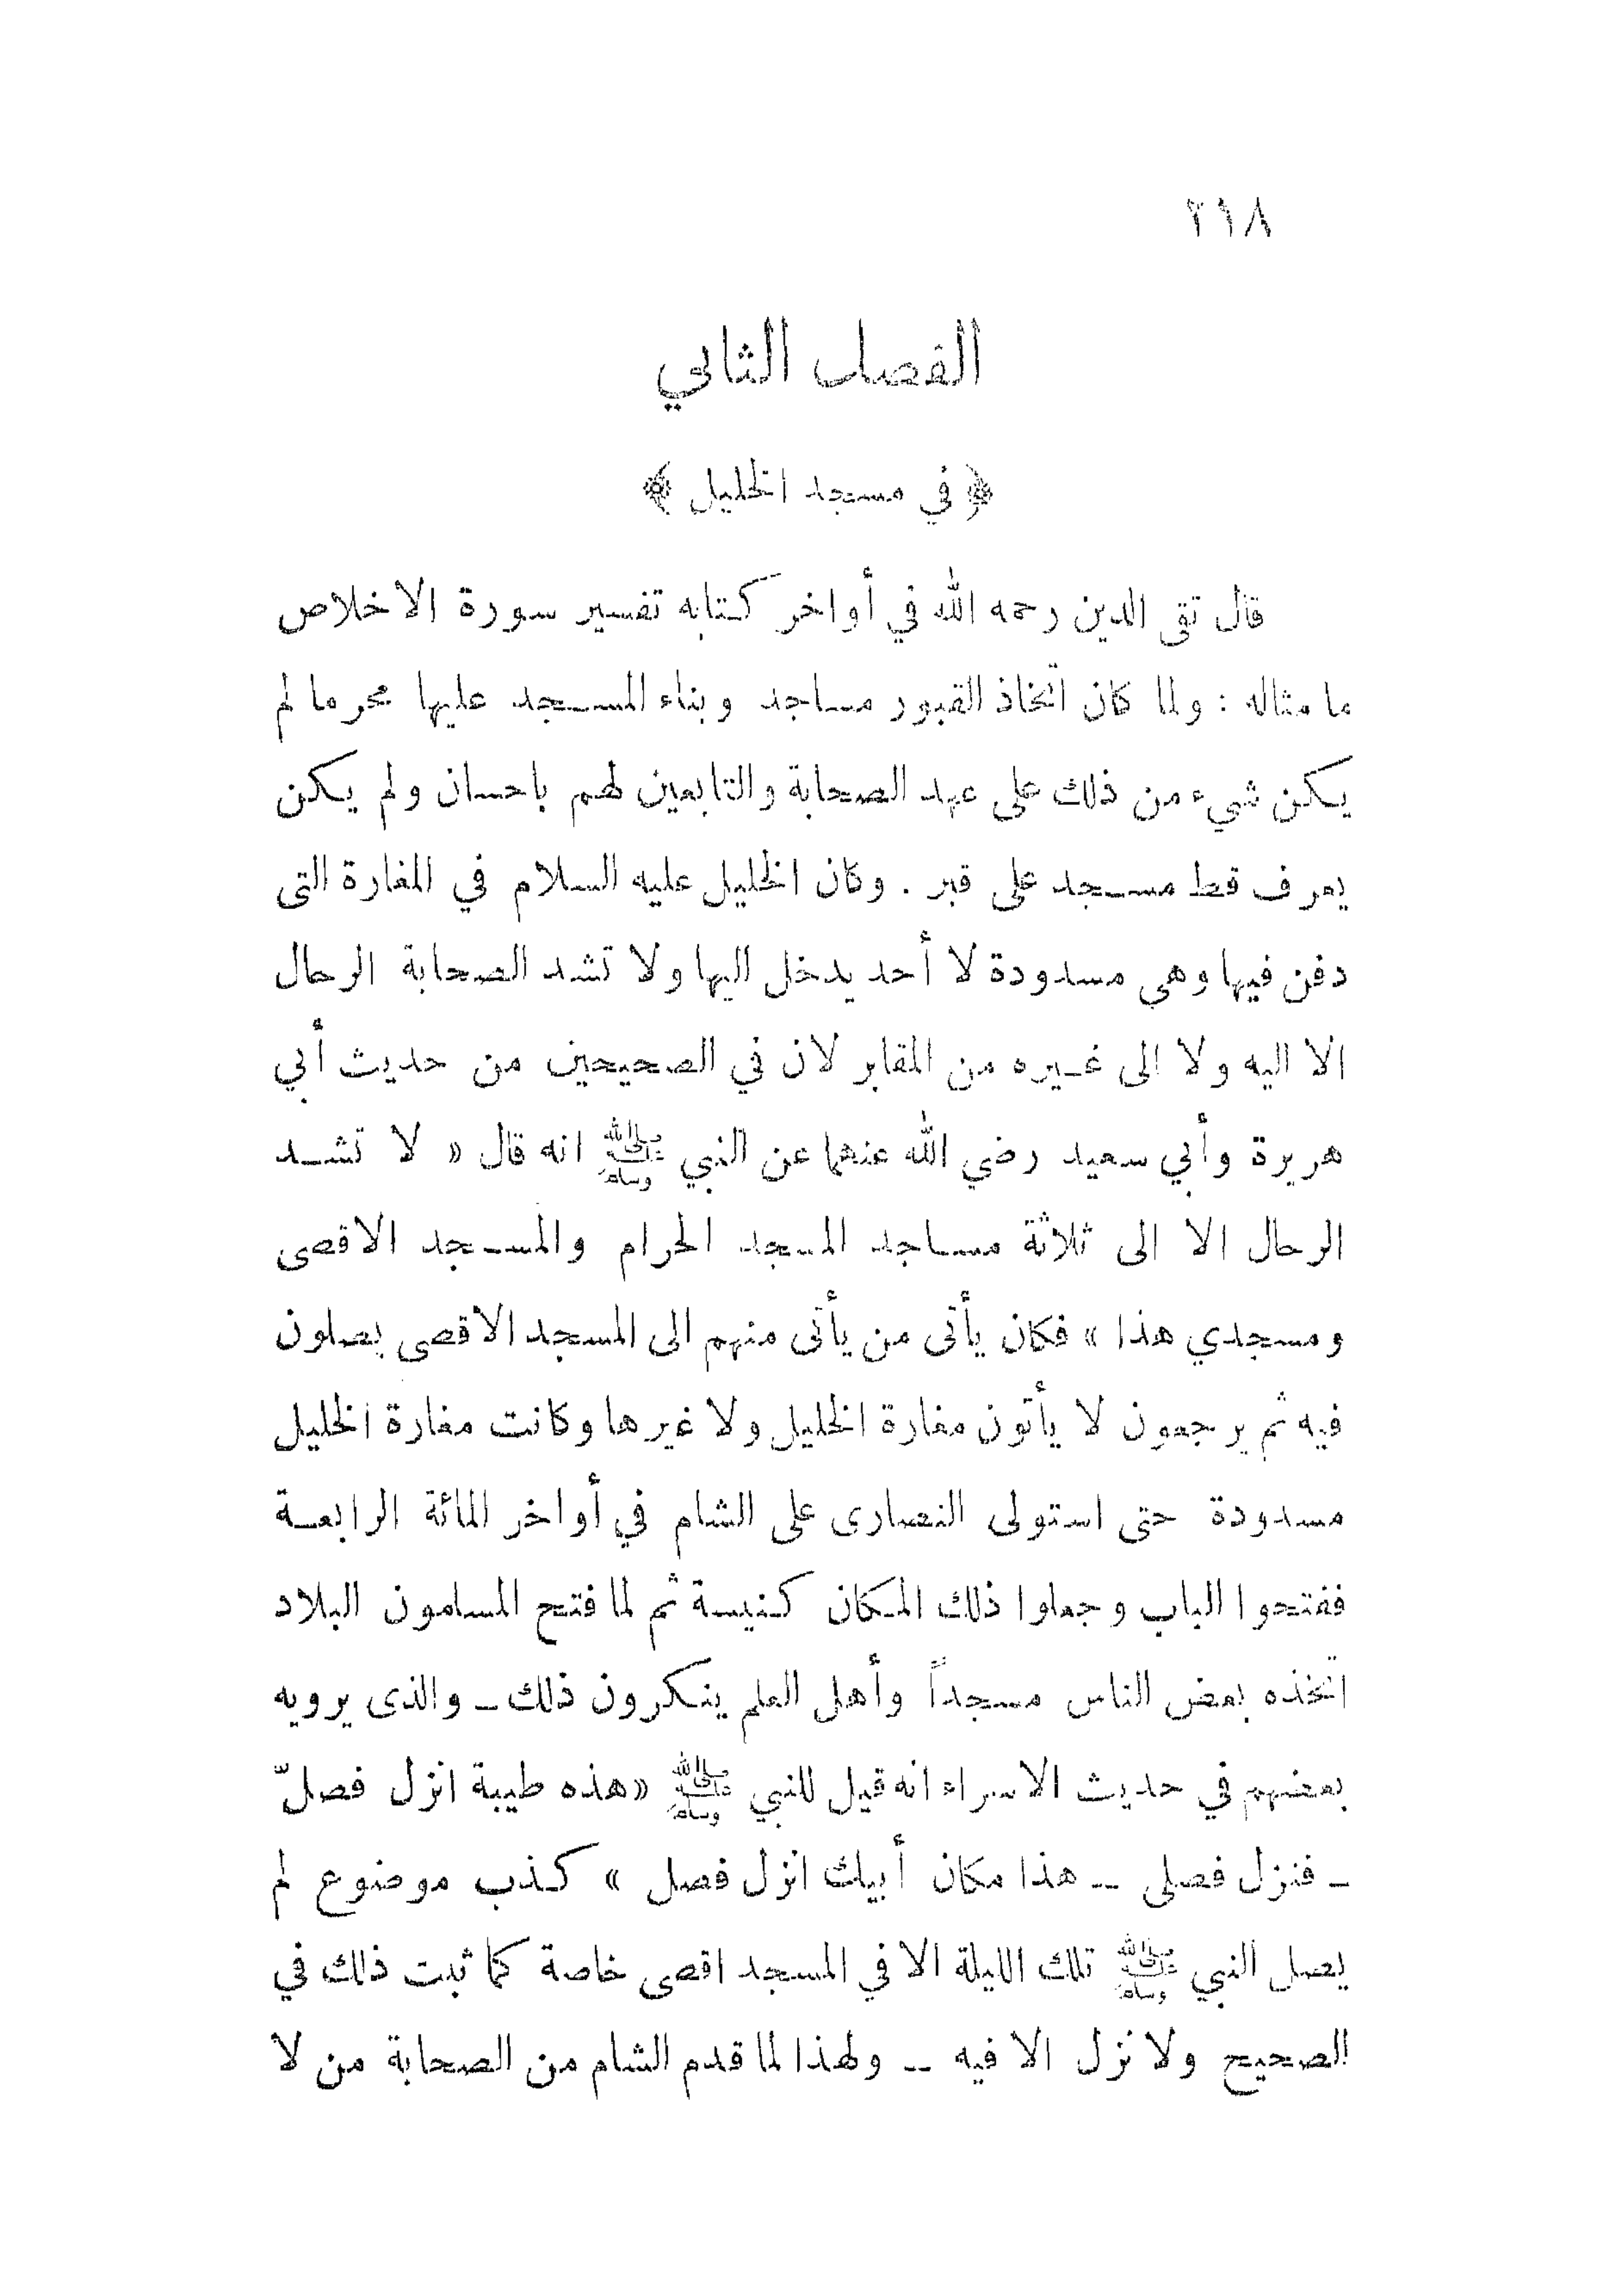 ٢١٨
الفصل الثاني
﴿ في مسجد الخليل ﴾
قال تقى الدين رحمه الله في أواخر كتابه تفسير سورة الاخلاص
ما مثاله : ولما كان اتخاذ القبور مساجد وبناء المسجد عليها محرما لم
يكن شيء من ذلك على عهد الصحابة والتابعين لهم باحسان ولم يكن
يعرف قط مسجد على قبر . وكان الخليل عليه السلام في المغارة التى
دفن فيها وهي مسدودة لا أحد يدخل اليها ولا تشد الصحابة الرحال
الا اليه ولا الى غيره من المقابر لان في الصحيحين من حديث أبي
هريرة وأبي سعيد رضي الله عنهما عن النبي ﷺ انه قال « لا تشد
الرحال الا الى ثلاثة مساجد المسجد الحرام والمسجد الاقصى
ومسجدي هذا » فكان يأتى من يأتى منهم الى المسجد الاقصى يصلون
فيه ثم يرجعون لا يأتون مغارة الخليل ولا غيرها وكانت مغارة الخليل
مسدودة حتى استولى النصارى على الشام في أواخر المائة الرابعة
ففتحوا الباب وجعلوا ذلك المكان كنيسة ثم لما فتح المسلمون البلاد
اتخذه بعض الناس مسجداً وأهل العلم ينكرون ذلك ـ والذى يرويه
بعضهم في حديث الاسراء انه قيل للنبي ﷺ «هذه طيبة انزل فصلّ
ـ فنزل فصلى ـ هذا مكان أبيك انزل فصل » كذب موضوع لم
يصل النبي ﷺ تلك الليلة الا في المسجد اقصى خاصة كما ثبت ذلك في
الصحيح ولا نزل الا فيه ـ ولهذا لما قدم الشام من الصحابة من لا